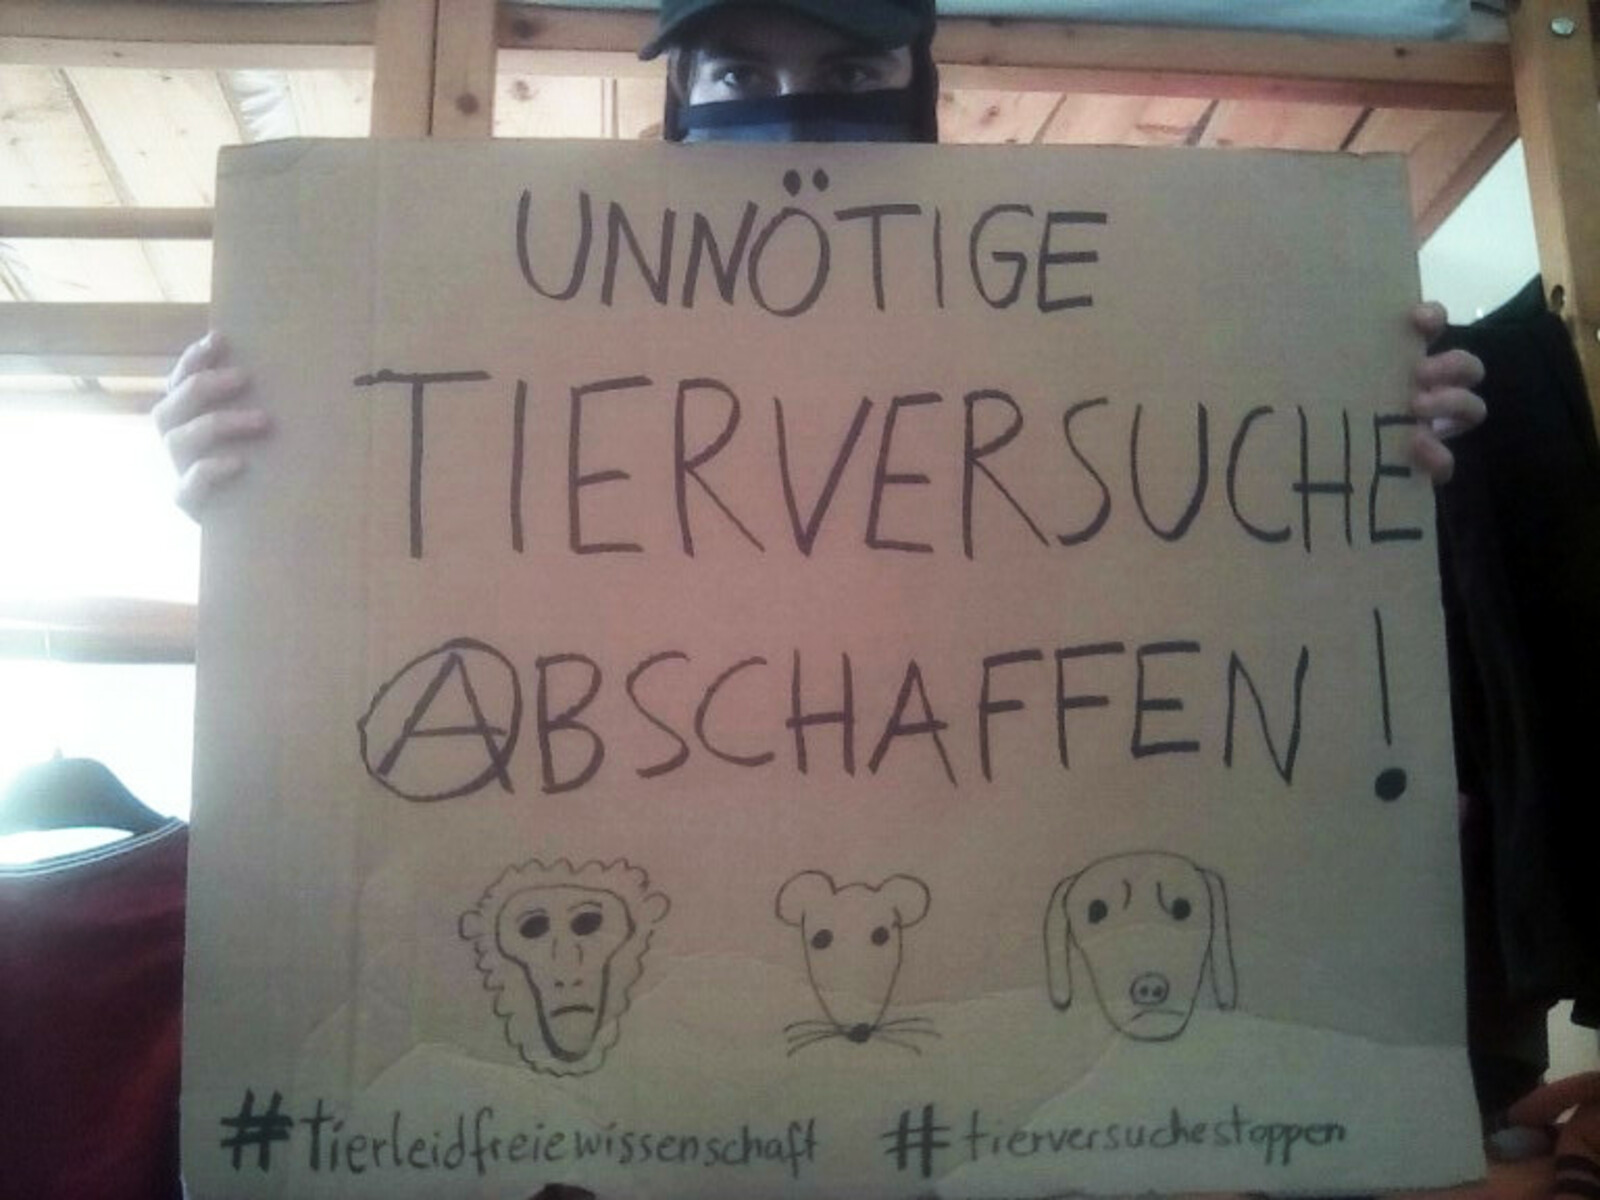 UNNÖTIGE
TIERVERSUCHE
ABSCHAFFEN!
#tierleidfreiewissenschaft #tierversuchestoppen